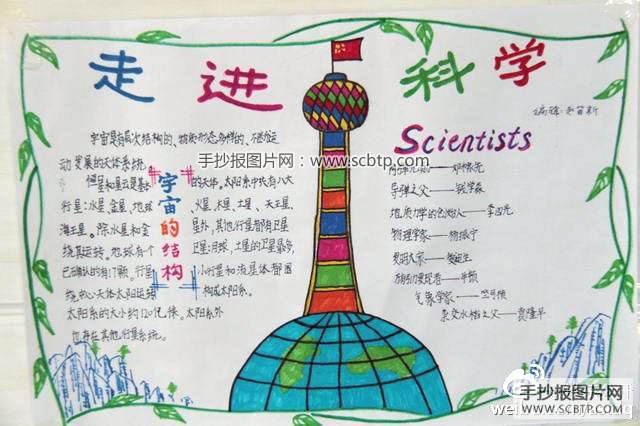 走进科学
宇宙是有层次结构的、物质形态多样的、不断运
动发展的天体系统。
恒星和星云是基本的天体。太阳系中共有八大
行星：水星、金星、地球、火星、木星、土星、天王星、
海王星。除水星和金星外，其他行星都有卫星
绕其运转。地球有个卫星：月球，土星的卫星最多，
已确认的有17颗。行星、小行星和流星体都围
绕中心天体太阳运转构成太阳系。
太阳系的大小约120亿
太阳系外
也存在其他行星系统。
宇宙的结构
手抄报图片网：www.scbtp.com
Scientists
邓稼先
导弹之父——钱学森
地质力学的创始人——李四光
物理学家——杨振宁
爱迪生
牛顿
气象学家——竺可桢
杂交水稻之父——袁隆平
手抄报图片网
WWW.SCBTP.COM